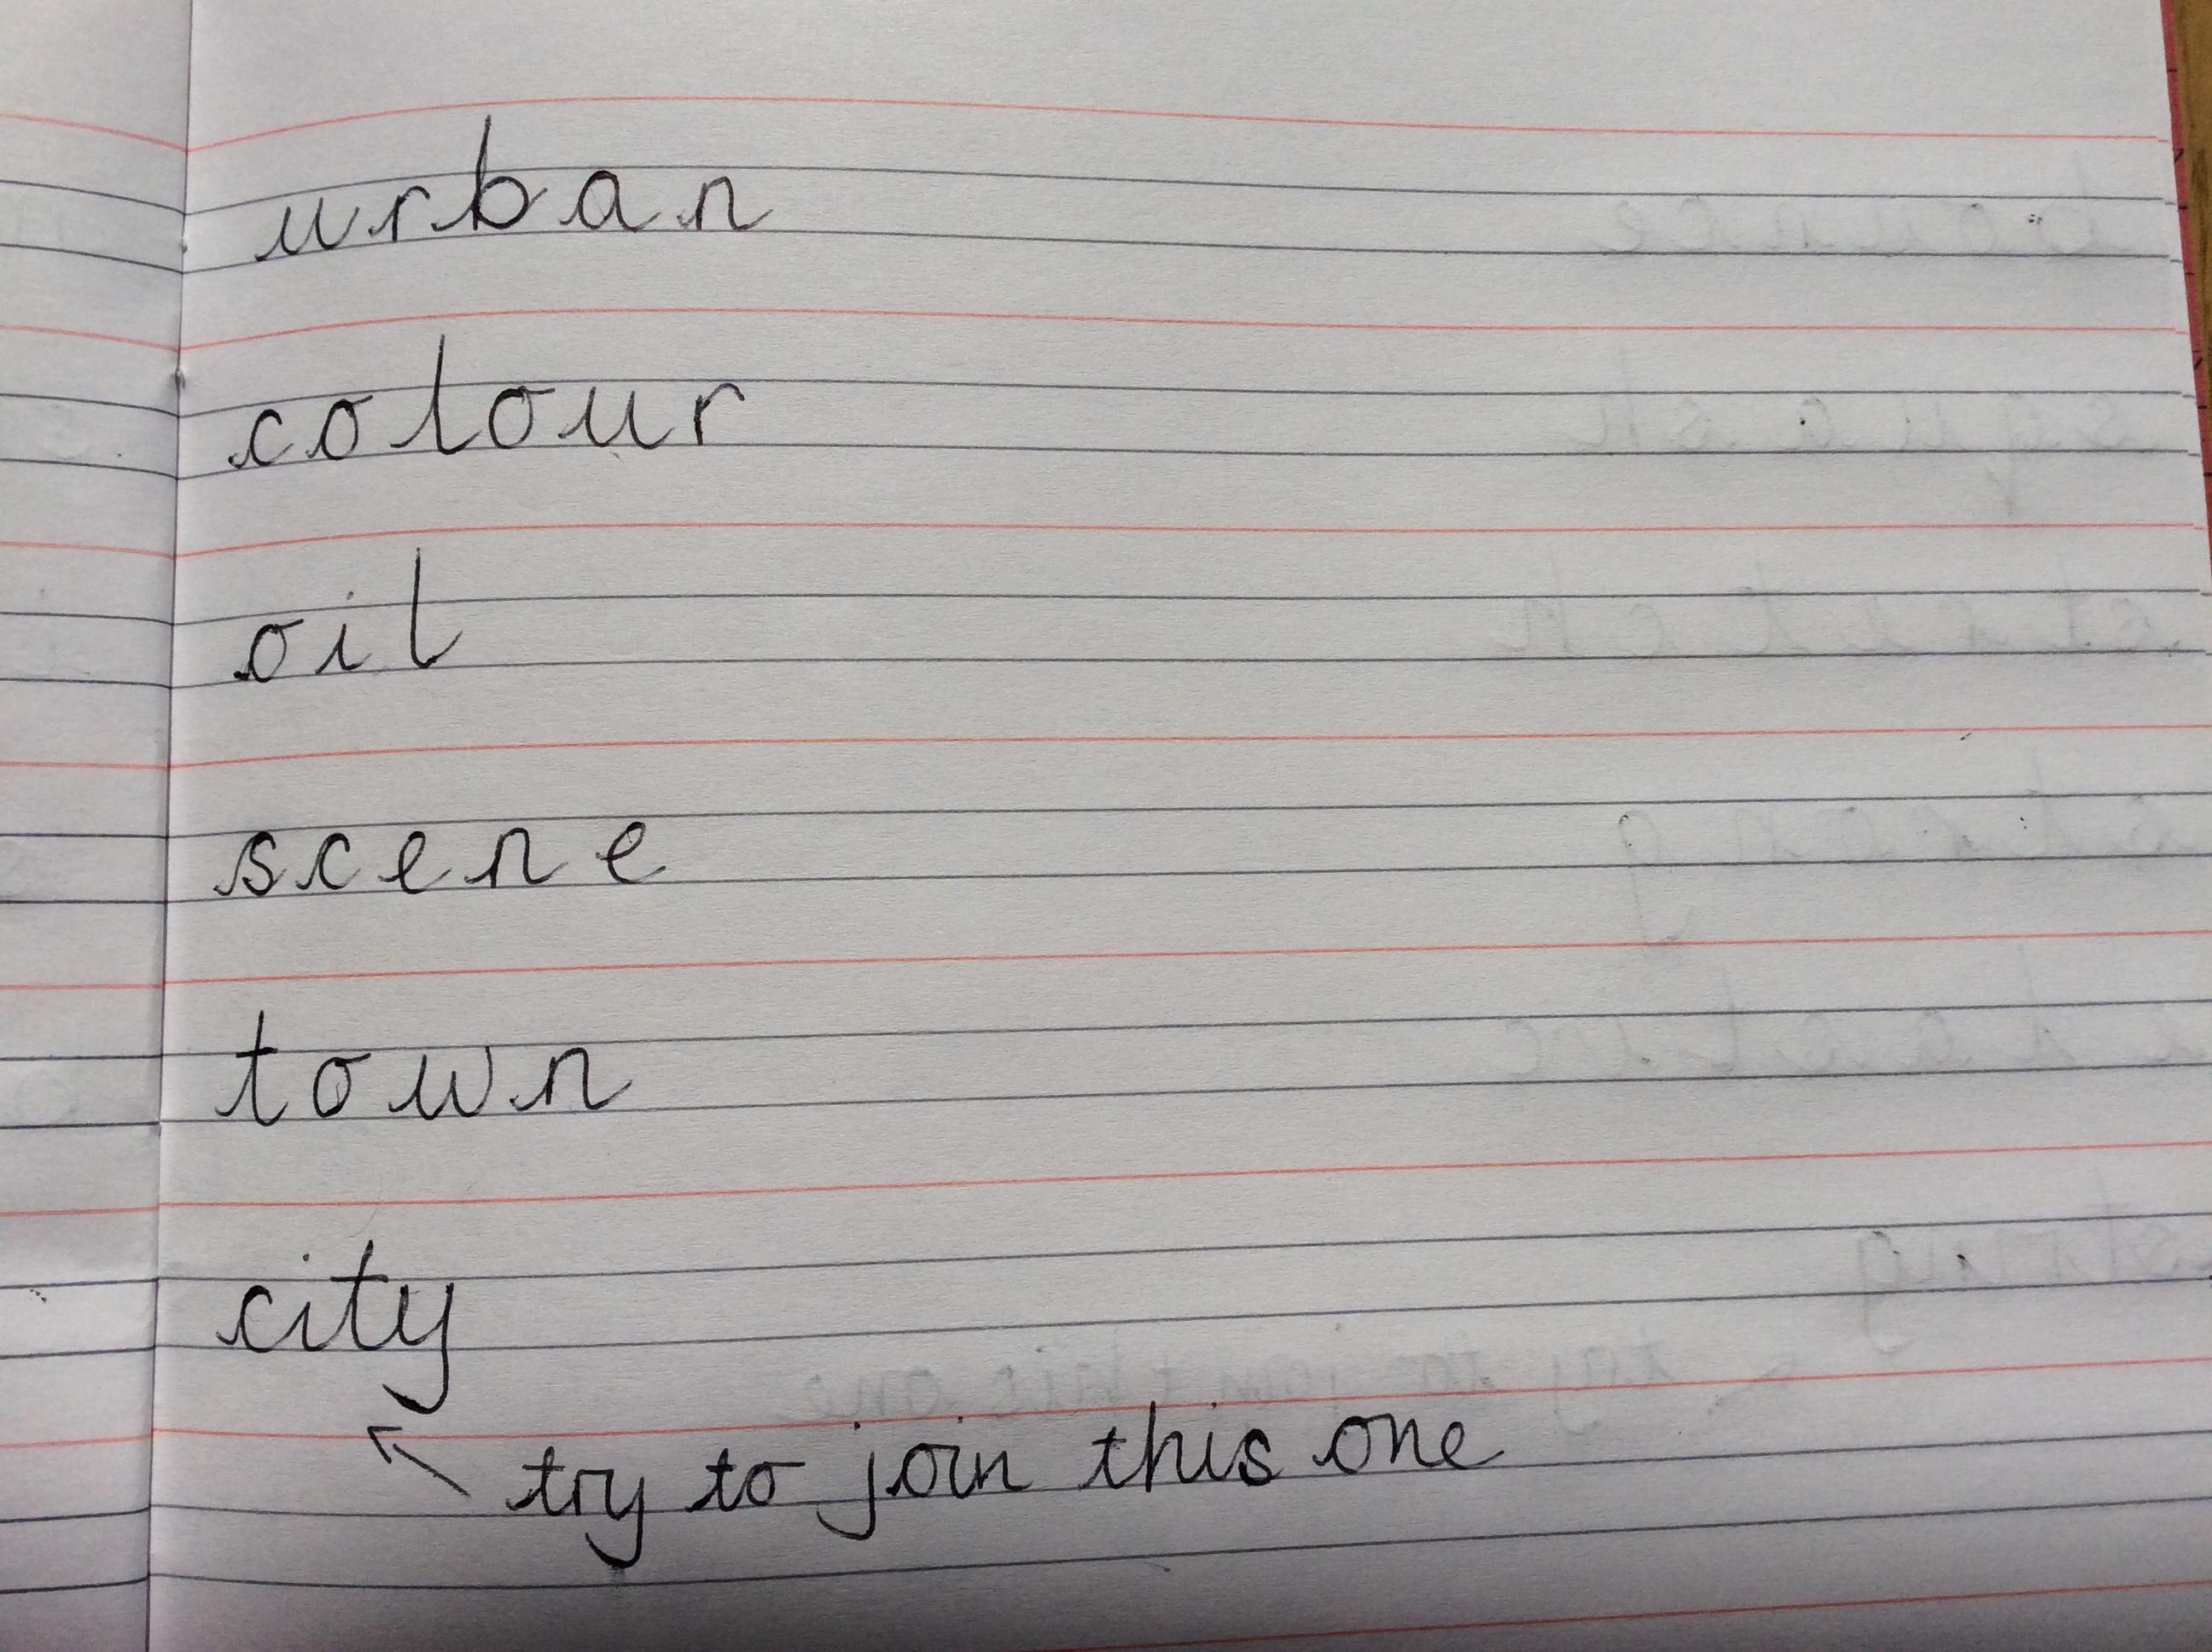 urban
colour
oil
scene
town
city
try to join this one